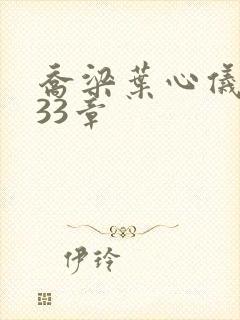 乔梁葉心儀
33章
伊玲